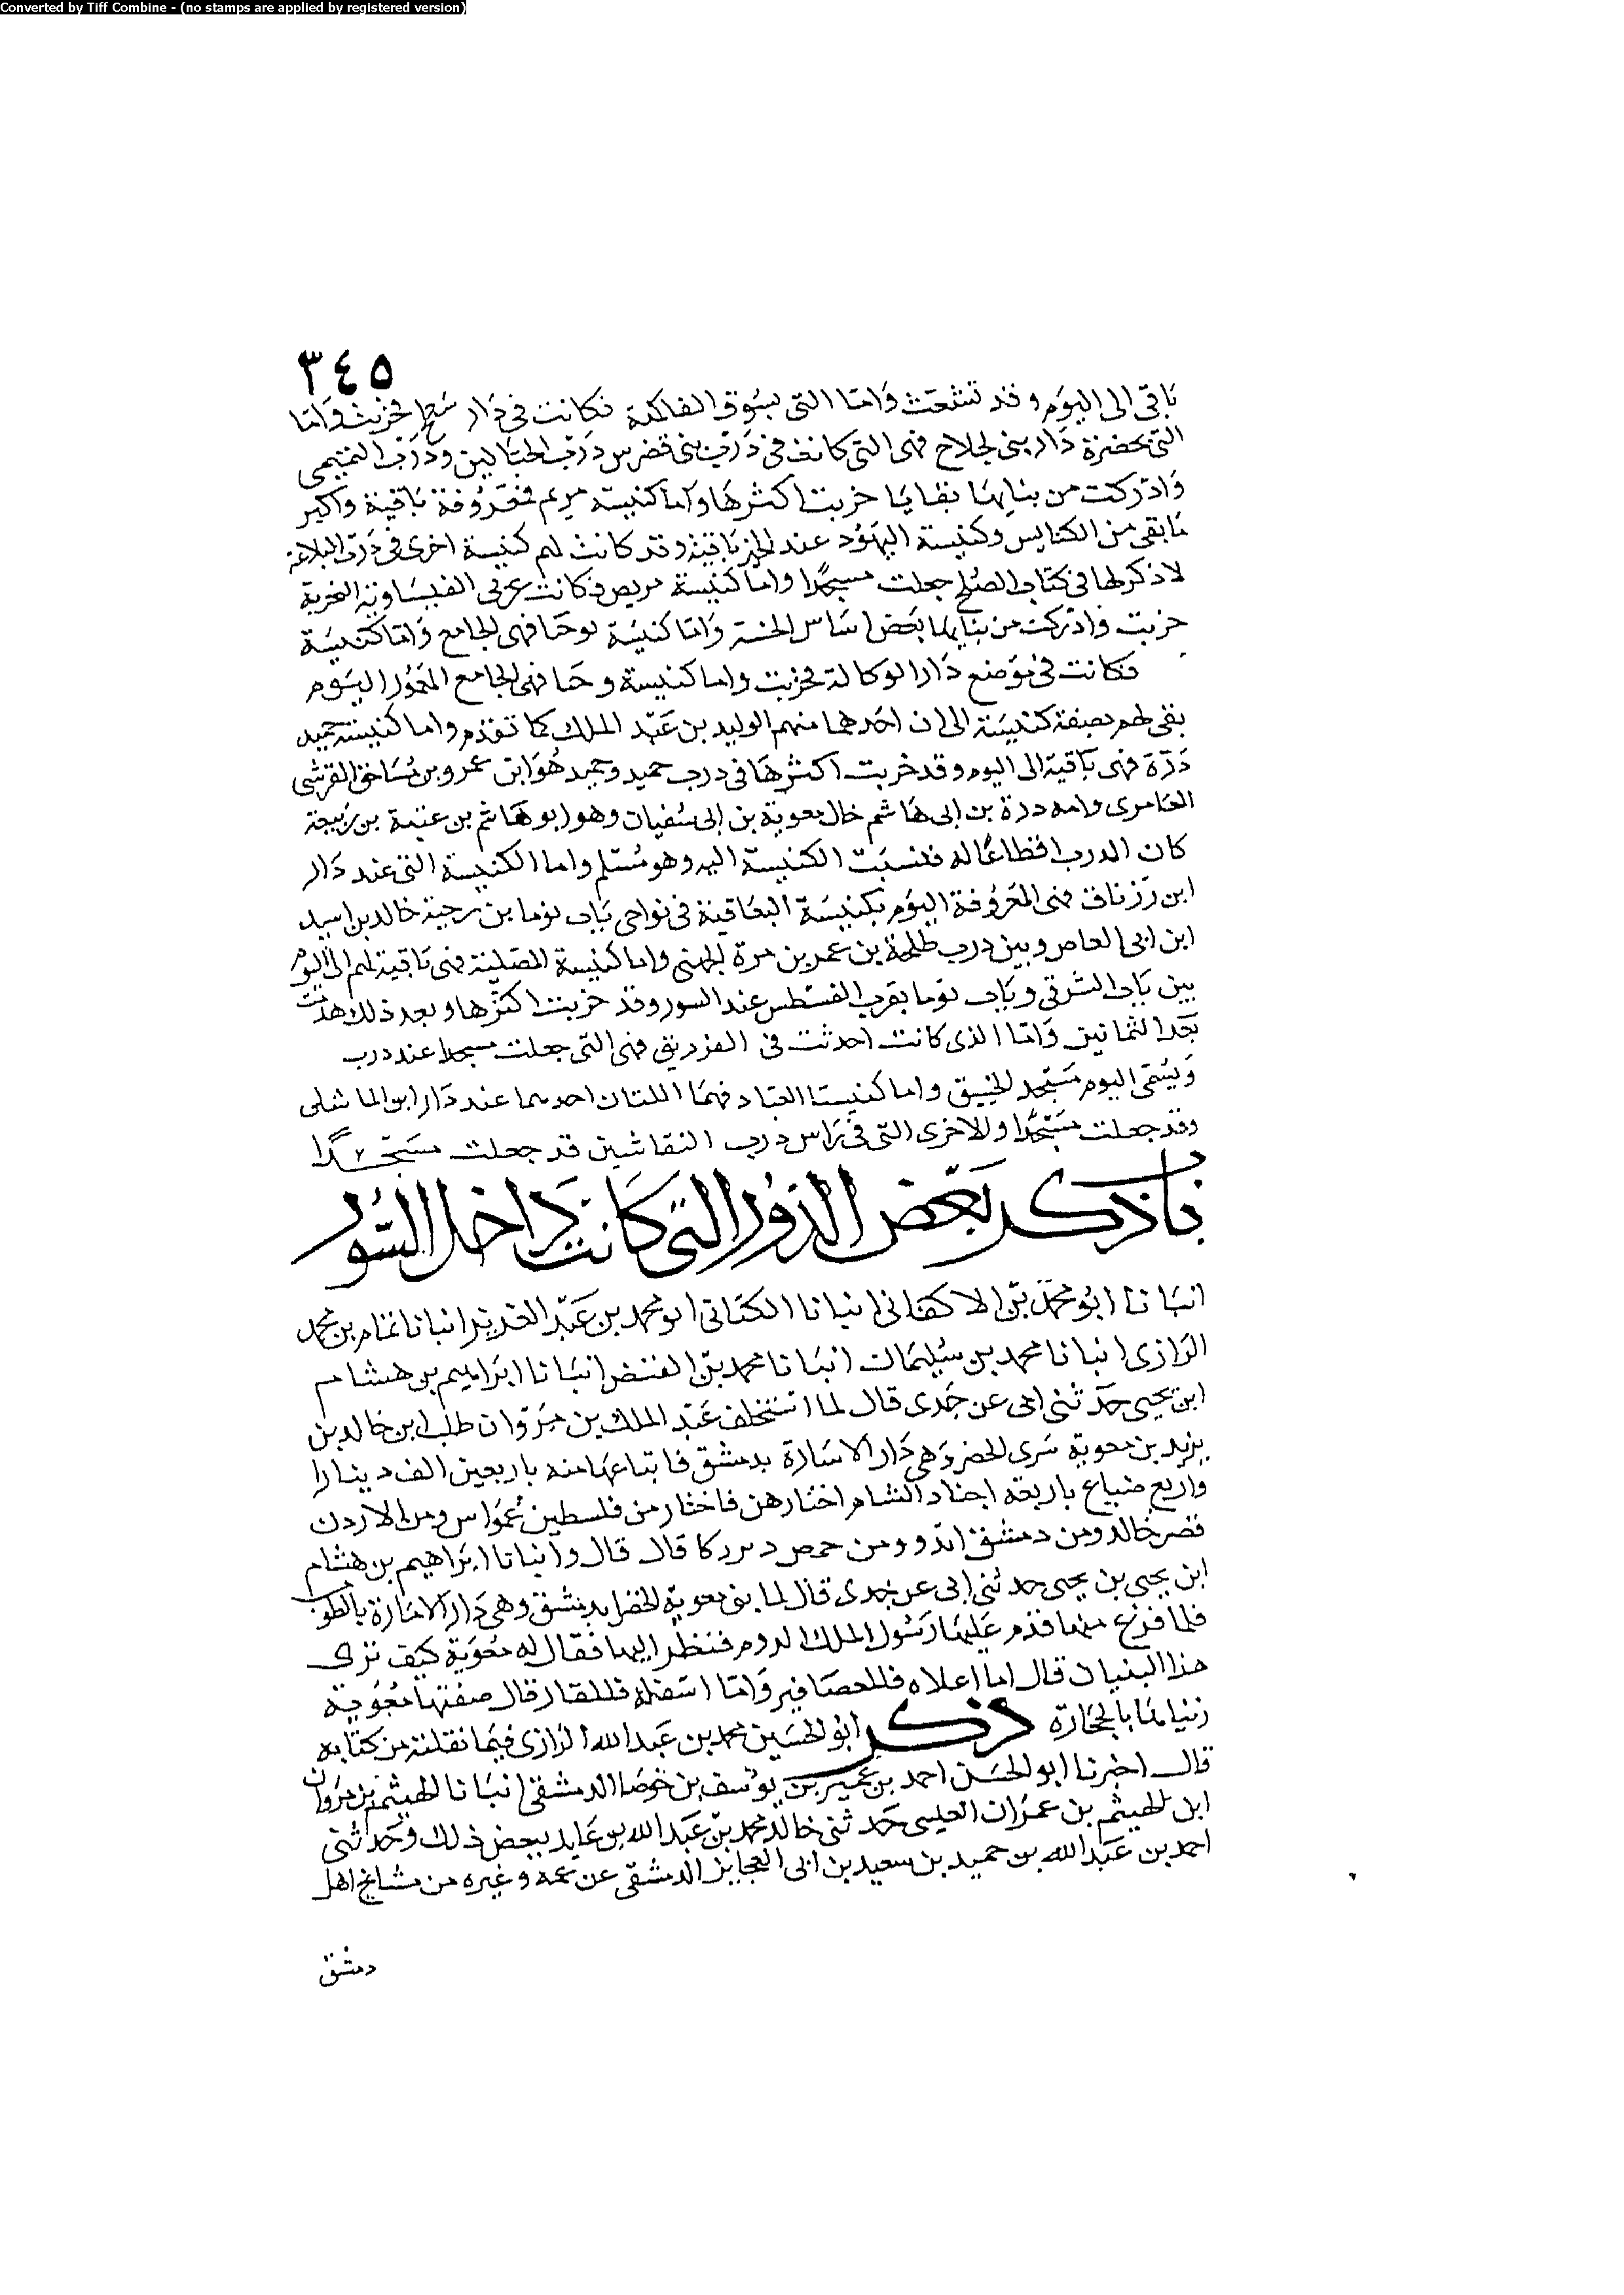 Converted by Tiff Combine - (no stamps are applied by registered version)
٣٤٥
باقى الى اليوم وقد تشعثت واما التى بسوق الفاكهة فكانت فى دار فخربت واما
التى بحضرة دار بنى لجلاج فهى التى كانت فى درب بنى نضر من درب الحبالين ودرب التميمى
وادركت من بنايها بقايا خربت اكثرها واما كنيسة مريم فمعروفة باقية واكبر
ما بقى من الكنايس وكنيسة اليهود عند باقية وقد كانت لهم كنيسة اخرى فى درب البلاغة
لا ذكر لها فى كتاب الصلح جعلت مسجدا واما كنيسة فكانت غربى القيساوية الفخرية
خربت وادركت من بنايها بعض اساس الحنية واما كنيسة يوحنا فهى الجامع واما كنيسة
فكانت فى موضع دار الوكالة فخربت واما كنيسة وحنا فهى الجامع المعمور اليوم
بقى لهم نصفه كنيسة الى ان اخذها منهم الوليد بن عبد الملك كما تقدم واما كنيسة حميد
درة فهى باقية الى اليوم وقد خربت اكثرها فى درب حميد وحميد هو ابن عمرو بن مساحق القرشى
العامرى وامه درة بن ابى هاشم خال معوية بن ابى سفيان وهو ابو هاشم بن عتبة بن ربيعة
كان الدرب اقطاعا له فنسبت الكنيسة اليه وهو مسلم واما الكنيسة التى عند دار
ابن فهى المعروفة اليوم بكنيسة اليعاقبة فى نواحى باب توما بن رحبة خالد بن اسيد
ابن ابى العاص وبين درب طلحة بن عمر بن مرة الجهنى واما كنيسة المصلبة فهى باقية لهم الى اليوم
بين باب الشرقى وباب توما بقرب عند السور وقد خربت اكثرها وبعد ذلك هدمت
بعد الثمانين واما الذى كانت احدثت فى فهى التى جعلت مسجدا عند درب
ويسمى اليوم مسجد واما كنيستا العباد فهما اللتان احدهما عند دار ابن الماشلى
وقد جعلت مسجدا والاخرى التى فى راس درب النقاشين قد جعلت مسجدا
باذكر بعض الدور التى كانت داخل السور
انبانا ابو محمد بن الاكفانى انبانا الكتانى ابو محمد بن عبد العزيز انبانا تمام بن محمد
الرازى انبانا محمد بن سليمان انبانا محمد بن الفيض انبانا ابراهيم بن هشام
ابن يحيى حدثنى ابى عن جدى قال لما استخلف عبد الملك بن مروان طلب ابن خالد بن
يزيد بن معوية شرى الخضر وهى دار الاسارة بدمشق فابتاعها منه باربعين الف دينارا
واربع ضياع باربعة اجناد الشام اختارهن فاختار من فلسطين عمواس ومن الاردن
قصر خالد ومن دمشق اندو ومن حمص قال قال وانبانا ابراهيم بن هشام
ابن يحيى بن يحيى حدثنى ابى عن جدى قال لما بنى معوية الخضرا بدمشق وهى دار الامارة بالطوب
فلما فرغ منها قدم عليها رسول الملك الروم فنظر اليها فقال له معوية كيف ترى
هذا البنيان قال اما اعلاه فللعصافير واما اسفله فللفار قال فنقضها معوية
بالحجارة ذكر ابو الحسين محمد بن عبد الله الرازى فيما نقلته من كتابه
قال اخبرنا ابو الحسن احمد بن عمير بن يوسف بن جوصا الدمشقى انبانا الهيثم بن مروان
ابن الهيثم بن عمران العبسى حدثنى خالد محمد بن عبد الله بن عايد ببعض ذلك وحدثنى
احمد بن عبد الله بن حميد بن سعيد بن ابى العجايز الدمشقى عن عمه وغيره من مشايخ اهل
دمشق